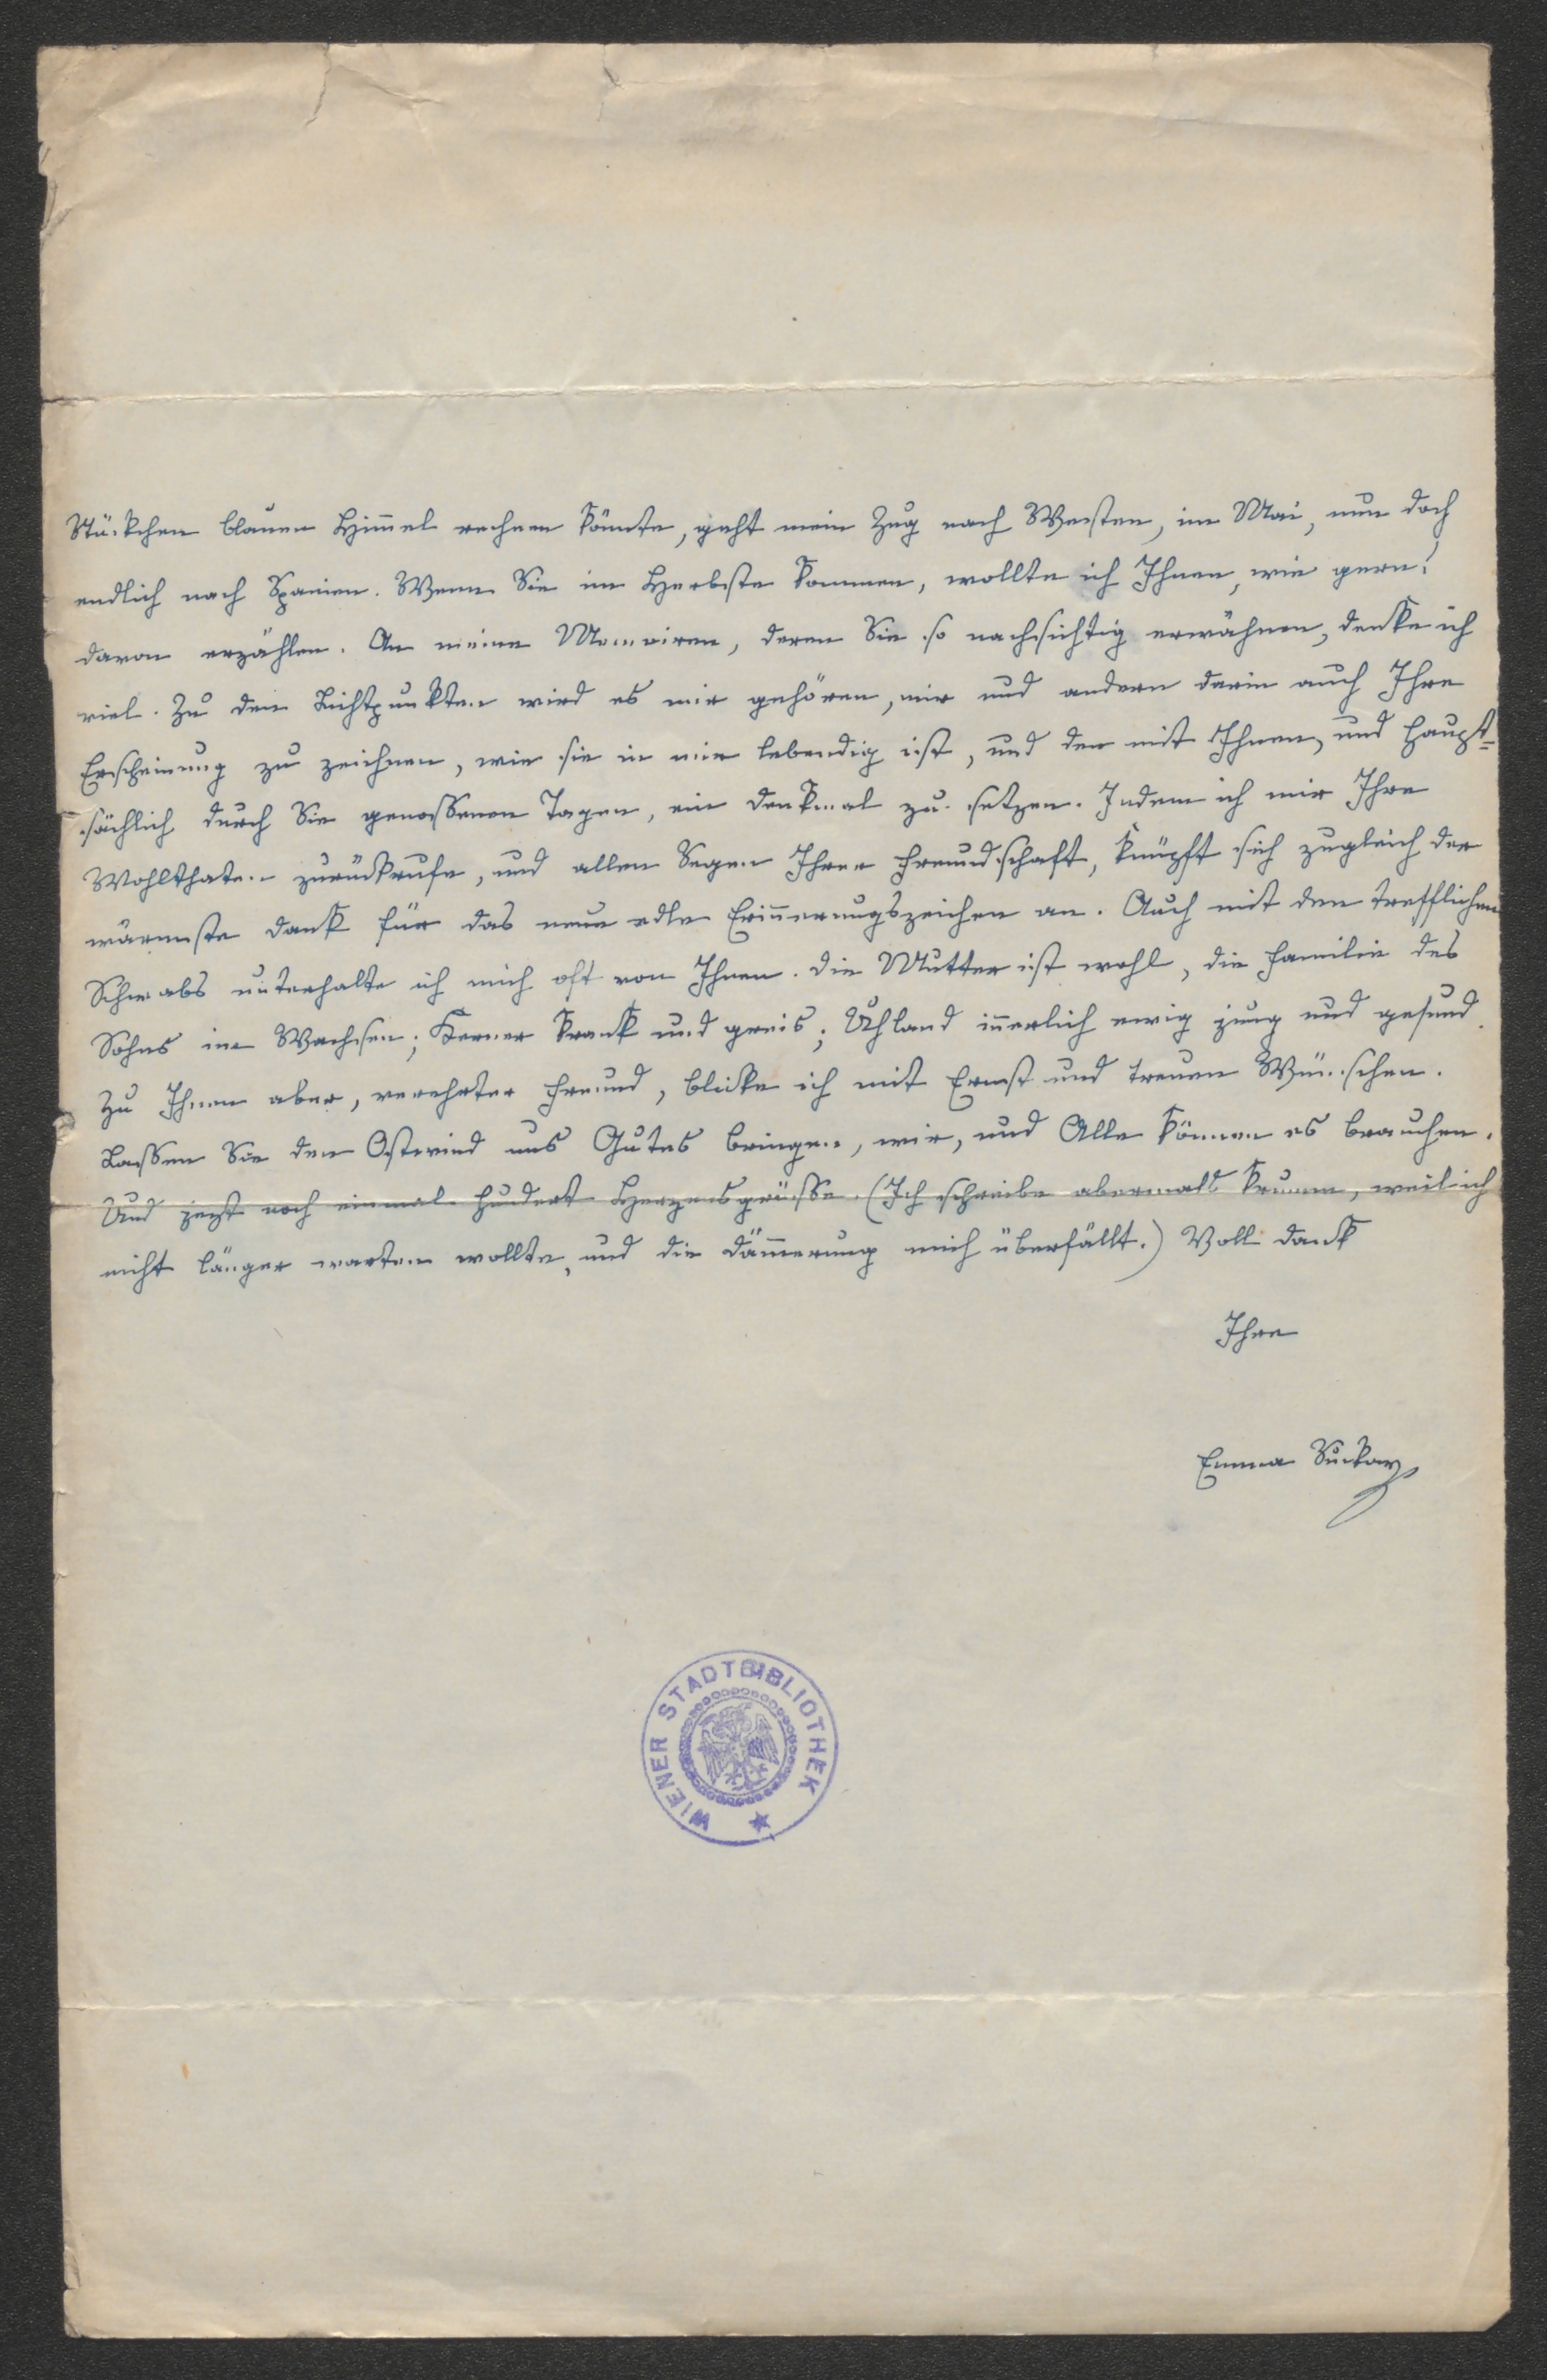 Stückchen blauen Him̅el rechnen könnte, geht mein Zug nach Westen, im Mai, nun doch
endlich nach Spanien. Wenn Sie im Herbste kommen, wollte ich Ihnen, wie gern!
davon erzählen. An meine Memoiren, deren Sie so nachsichtig erwähnen, denke ich
viel. Zu den Lichtpunkten wird es mir gehören, mir und andern darin auch Ihre
Erscheinung zu zeichnen, wie sie in mir lebendig ist, und den mit Ihnen, und haupt-
sächlich durch Sie genossenen Tagen, ein Denkmal zu setzen. Indem ich mir Ihre
Wohlthaten zurückrufe, und allen Segen Ihrer Freundschaft, knüpft sich zugleich der
wärmste Dank für das neue edle Erin̅erungszeichen an. Auch mit den trefflichen
Schwabs unterhalte ich mich oft von Ihnen. Die Mutter ist wohl, die Familie des
Sohns im Wachsen; Kerner krank und greis; Uhland in̅erlich ewig jung und gesund.
Zu Ihnen aber, verehrter Freund, blicke ich mit Ernst und treuen Wünschen.
Lassen Sie den Ostwind uns Gutes bringen, wir, und Alle können es brauchen.
Und jezt noch einmal hundert Herzensgrüsse. (Ich schreibe abermals krumm, weil ich
nicht länger warten wollte, und die Däm̅erung mich überfällt.) Voll Dank
Ihre
Emma Suckow
WIENER STADTBIBLIOTHEK